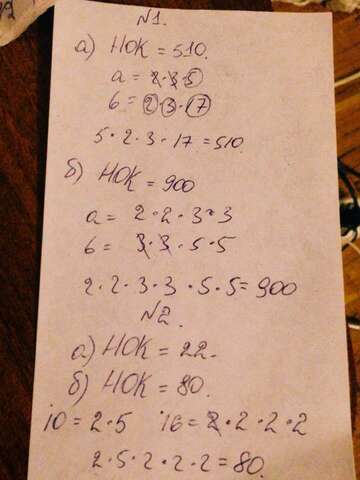 №1.
а) НОК = 510.
а = 2·3·5
б = 2·3·17
5·2·3·17=510.
б) НОК = 900
а = 2·2·3·3
б = 3·3·5·5
2·2·3·3·5·5=900
№2.
а) НОК = 22.
б) НОК = 80.
10=2·5 16=2·2·2·2
2·5·2·2·2=80.